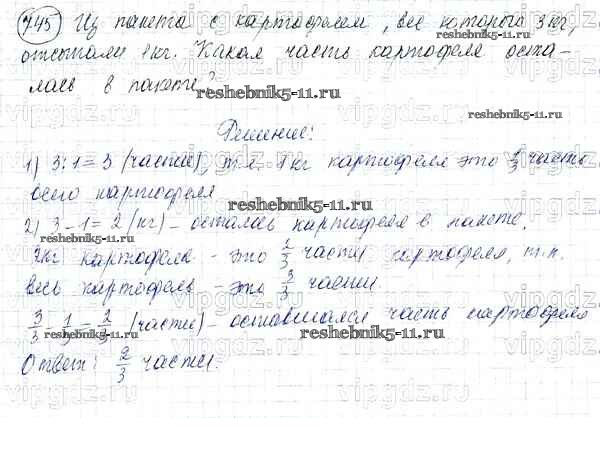 745 Из пакета с картофелем, вес которого 3 кг,
отсыпали 1 кг. Какая часть картофеля оста-
лась в пакете?
reshebnik5-11.ru
Решение:
1) 3:1=3 (части), т.е. 1 кг картофеля это 1/3 часть
всего картофеля
reshebnik5-11.ru
2) 3-1=2 (кг) - осталось картофеля в пакете.
reshebnik5-11.ru
2кг картофеля - это 2/3 части картофеля, т.к.
весь картофель - это 3/3 части.
reshebnik5-11.ru
3/3 - 1/3 = 2/3 (части) - оставшаяся часть картофеля
reshebnik5-11.ru
reshebnik5-11.ru
Ответ: 2/3 части.
vipgdz.com